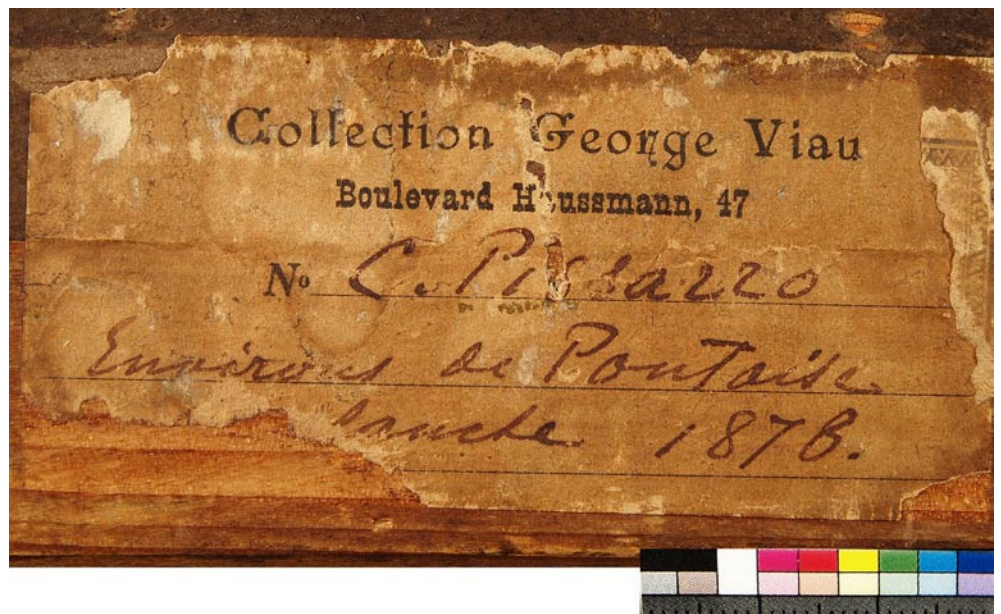 Collection George Viau
Boulevard Haussmann, 47
No C. Pissarro
Environs de Pontoise
1878.